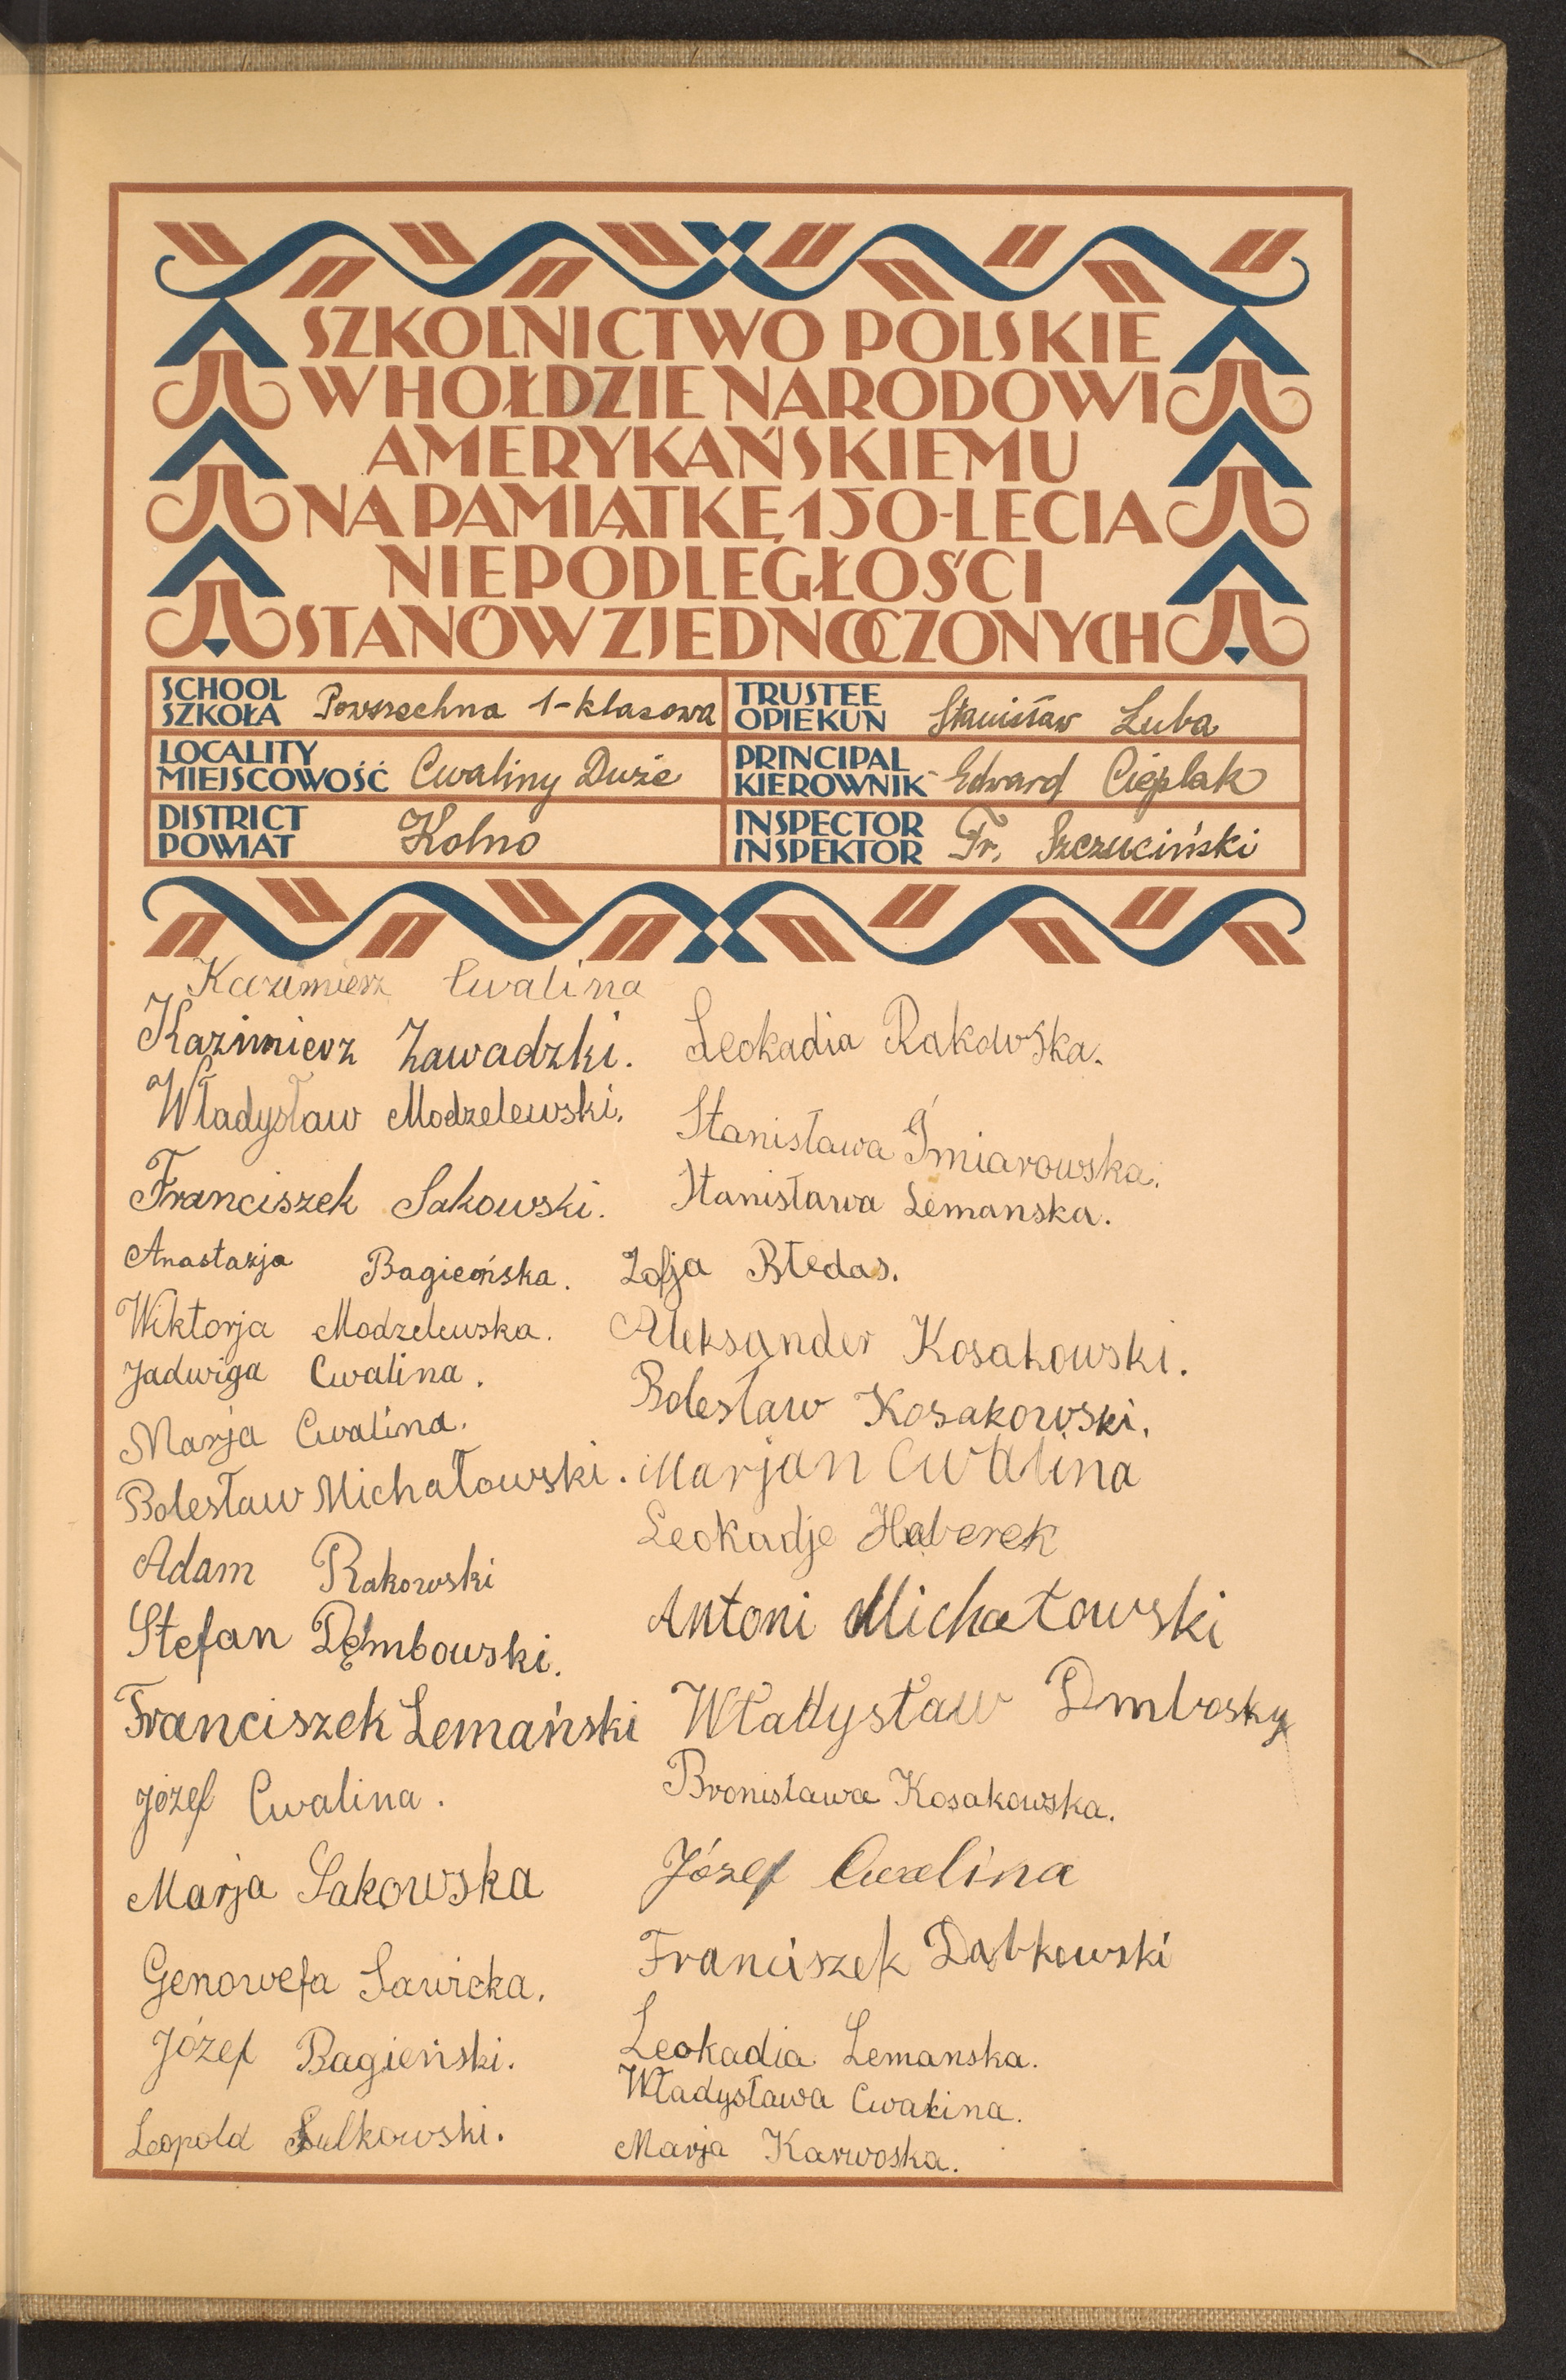 SZKOLNICTWO POLSKIE
W HOŁDZIE NARODOWI
AMERYKAŃSKIEMU
NA PAMIĄTKĘ 150-LECIA
NIEPODLEGŁOŚCI
STANÓW ZJEDNOCZONYCH
SCHOOL
SZKOŁA Powszechna 1-klasowa
TRUSTEE
OPIEKUN Stanisław Luba
LOCALITY
MIEJSCOWOŚĆ Cwaliny Duże
PRINCIPAL
KIEROWNIK Edward Cieplak
DISTRICT
POWIAT Kolno
INSPECTOR
INSPEKTOR Fr. Szczuciński
Kazimierz Cwalina
Kazimierz Zawadzki.
Władysław Modzelewski.
Franciszek Sakowski.
Anastazja Bagieońska.
Wiktorja Modzelewska.
Jadwiga Cwalina.
Marja Cwalina.
Bolesław Michałowski.
Adam Rakowski
Stefan Dęmbowski.
Franciszek Lemański
Józef Cwalina.
Marja Sakowska
Genowefa Sawicka.
Józef Bagieński.
Leopold Sulkowski.
Leokadia Rakowska.
Stanisława Śmiarowska.
Stanisława Lemanska.
Zofja Błedas.
Aleksander Kosakowski.
Bolesław Kosakowski.
Marjan Cwalina
Leokadje Haberek
Antoni Michałowski
Władysław Dmbosky
Bronisława Kosakowska.
Józef Cwalina
Franciszek Dąbkowski
Leokadia Lemanska.
Władysława Cwalina.
Marja Karwoska.